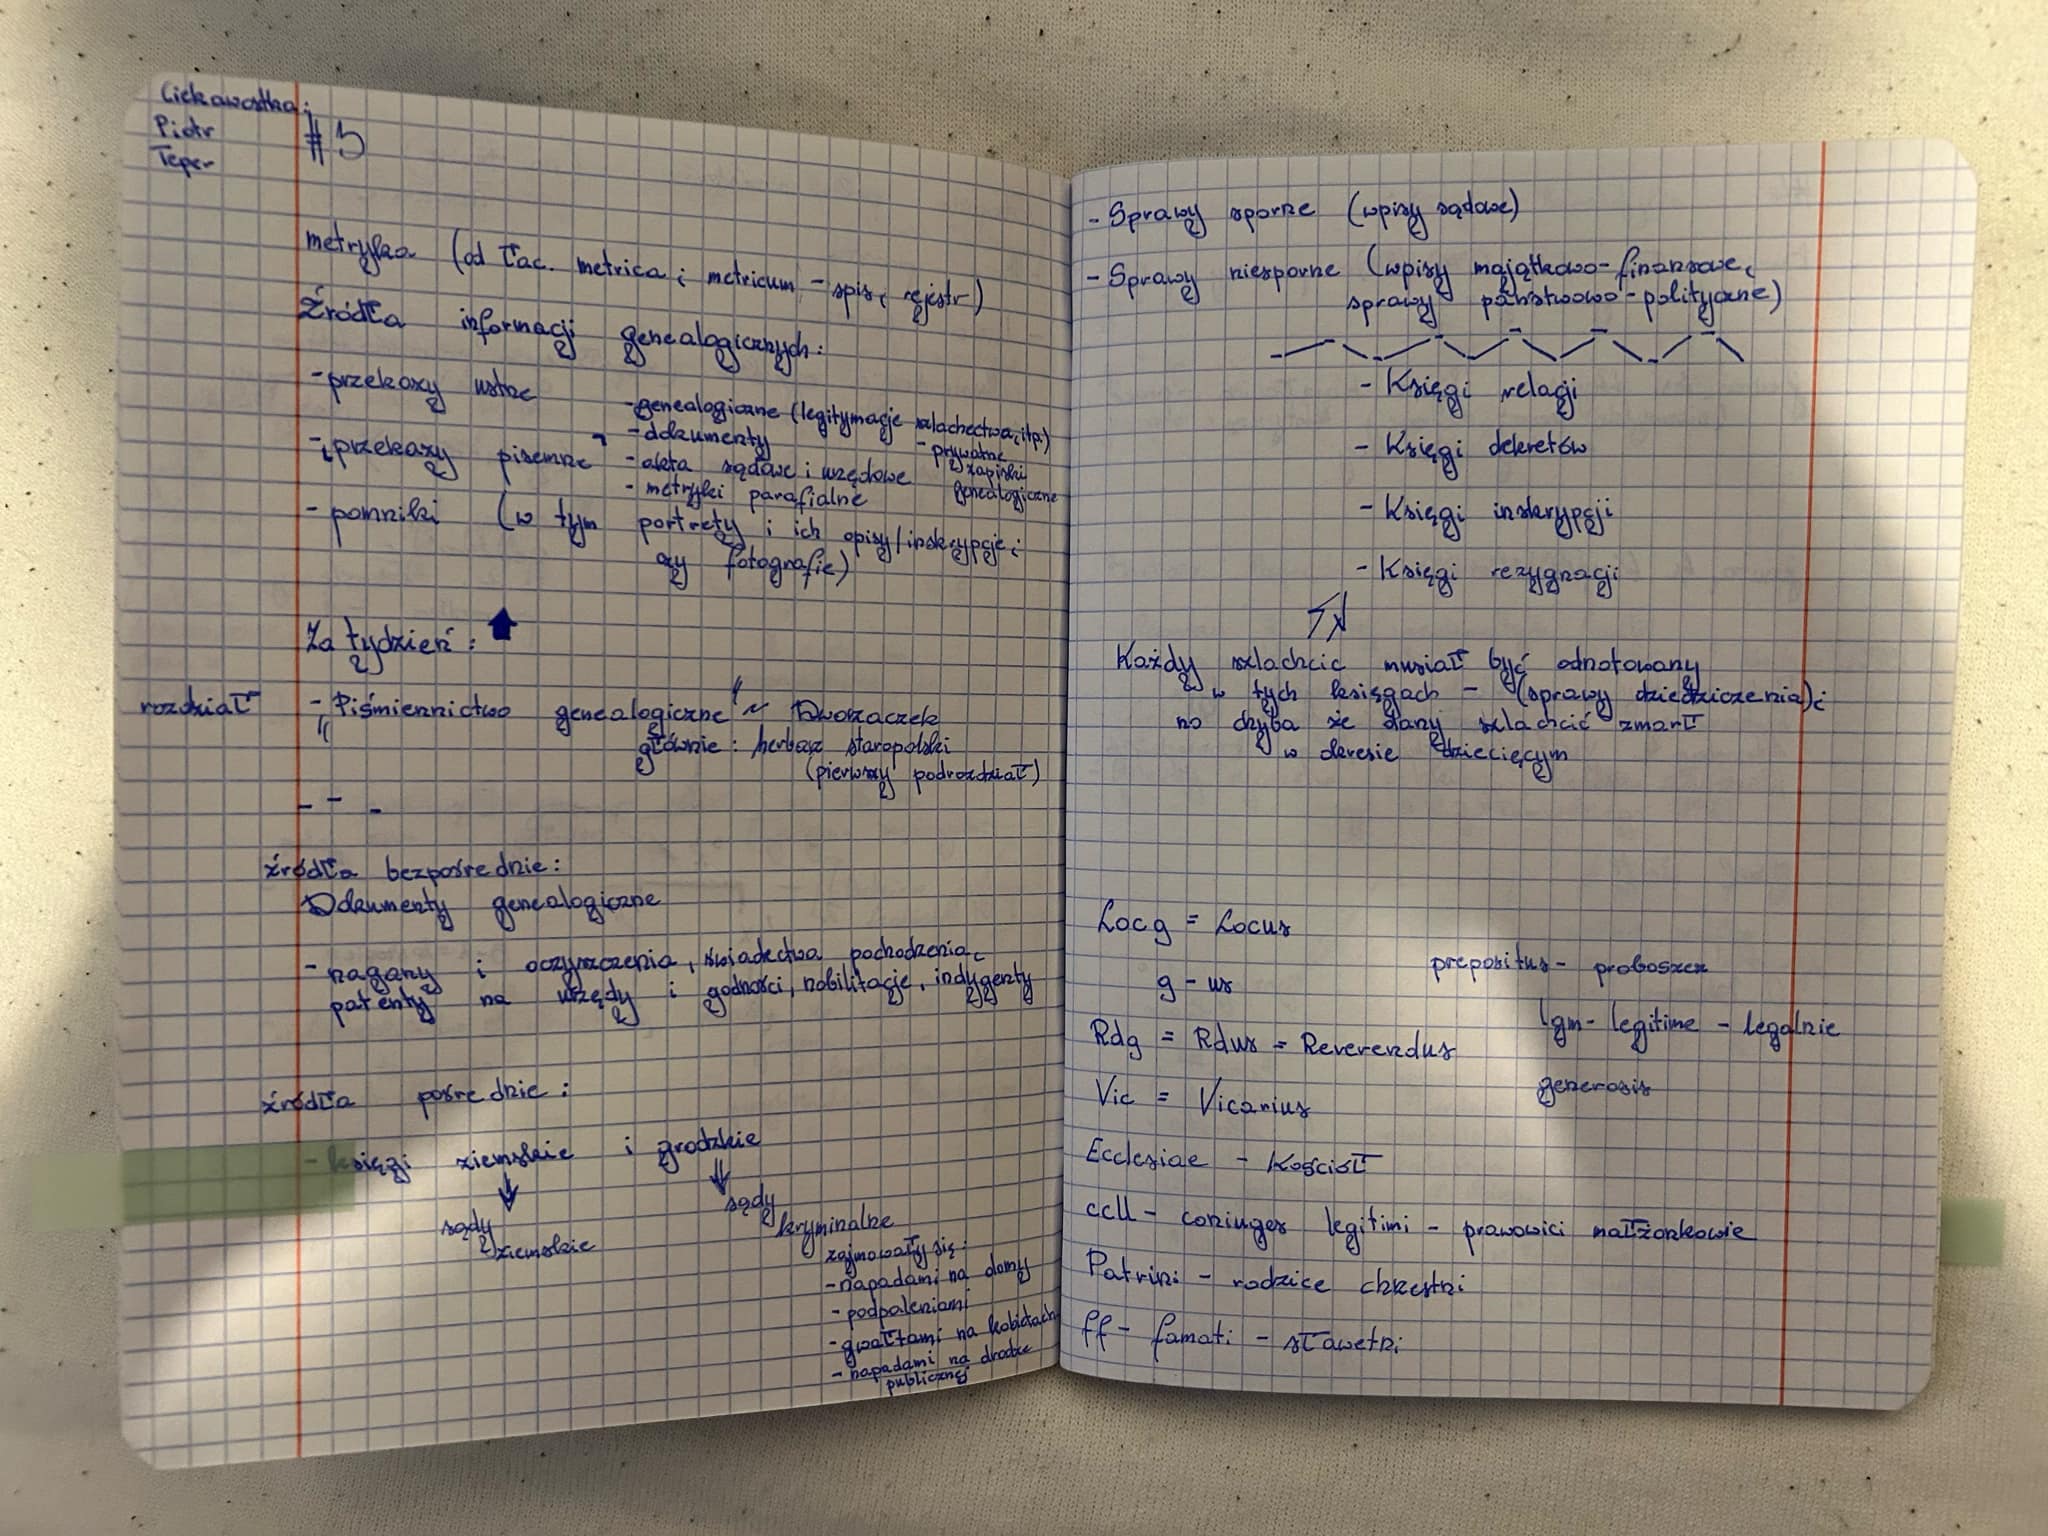 Ciekawostka:
Piotr
Teper
#5
metryka (od łac. metrica, metricum - spis, rejestr)
Źródła informacji genealogicznych:
- przekazy ustne
- przekazy pisemne
- genealogiczne (legitymacje szlachectwa, itp.)
- dokumenty
- akta sądowe i urzędowe
- metryki parafialne
- prywatne
zapiski
genealogiczne
- pomniki (w tym portrety i ich opisy/inskrypcje,
czy fotografie)
Za tydzień:
rozdział - "Piśmiennictwo genealogiczne" ~ Dworzaczek
głównie: herbarz staropolski
(pierwszy podrozdział)
- - -
źródła bezpośrednie:
Dokumenty genealogiczne
- nagany i oczyszczenia, świadectwa pochodzenia,
patenty na urzędy i godności, nobilitacje, indygenty
źródła pośrednie:
- księgi ziemskie i grodzkie
sądy
ziemskie
sądy
kryminalne
zajmowały się:
- napadami na domy
- podpaleniami
- gwałtami na kobietach
- napadami na drodze
publicznej
- Sprawy sporne (wpisy sądowe)
- Sprawy niesporne (wpisy majątkowo-finansowe,
sprawy państwowo-polityczne)
- Księgi relacji
- Księgi dekretów
- Księgi inskrypcji
- Księgi rezygnacji
Każdy szlachcic musiał być odnotowany
w tych księgach - (sprawy dziedziczenia),
no chyba że dany szlachcić zmarł
w okresie dziecięcym
Locg = Locus
g - us
Rdg = Rdus = Reverendus
Vic = Vicarius
Ecclesiae - Kościół
ccll - coniuges legitimi - prawowici małżonkowie
Patrini - rodzice chrzestni
ff - famati - sławetni
prepositus - proboszcz
lgm - legitime - legalnie
generosis